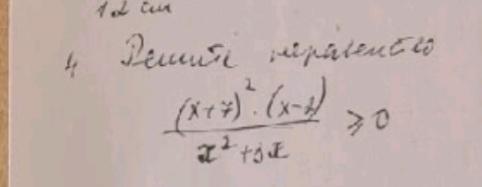 12 см
4 Решите неравенство
(x+7)²·(x-2)
x²+5x ≥0